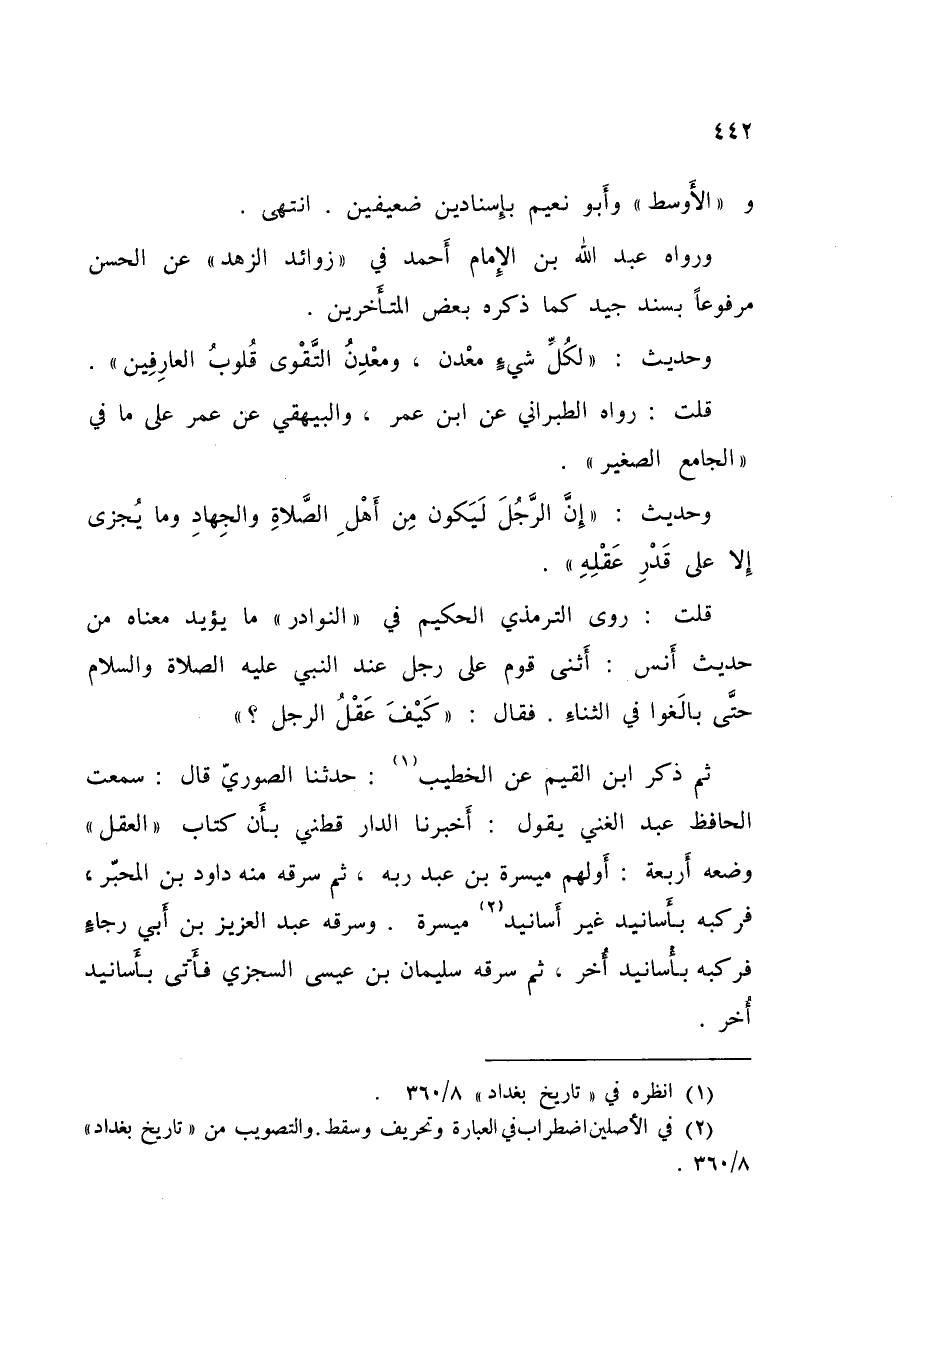 ٤٤٢
و «الأَوسط» وأَبو نعيم بإسنادين ضعيفين . انتهى .
ورواه عبد الله بن الإمام أَحمد في «زوائد الزهد» عن الحسن
مرفوعاً بسند جيد كما ذكره بعض المتأَخرين .
وحديث : «لكُلِّ شيءٍ معْدن ، ومعْدِنُ التَّقْوى قُلوبُ العارِفِين» .
قلت : رواه الطبراني عن ابن عمر ، والبيهقي عن عمر على ما في
«الجامع الصغير» .
وحديث : «إِنَّ الرَّجُلَ لَيَكون مِن أَهْلِ الصَّلاةِ والجِهادِ وما يُجزى
إلا على قَدْرِ عَقْلِهِ» .
قلت : روى الترمذي الحكيم في «النوادر» ما يؤيد معناه من
حديث أَنس : أَثنى قوم على رجل عند النبي عليه الصلاة والسلام
حتَّى بالَغوا في الثناء . فقال : «كَيْفَ عَقْلُ الرجل ؟»
ثم ذكر ابن القيم عن الخطيب(١) : حدثنا الصوريّ قال : سمعت
الحافظ عبد الغني يقول : أَخبرنا الدار قطني بأَن كتاب «العقل»
وضعه أَربعة : أَولهم ميسرة بن عبد ربه ، ثم سرقه منه داود بن المحبّر ،
فركبه بأَسانيد غير أَسانيد(٢) ميسرة . وسرقه عبد العزيز بن أَبي رجاءٍ
فركبه بأَسانيد أُخر ، ثم سرقه سليمان بن عيسى السجزي فأَتى بأَسانيد
أُخر .
(١) انظره في « تاريخ بغداد » ٣٦٠/٨ .
(٢) في الأصلين اضطراب في العبارة وتحريف وسقط. والتصويب من « تاريخ بغداد»
٣٦٠/٨ .